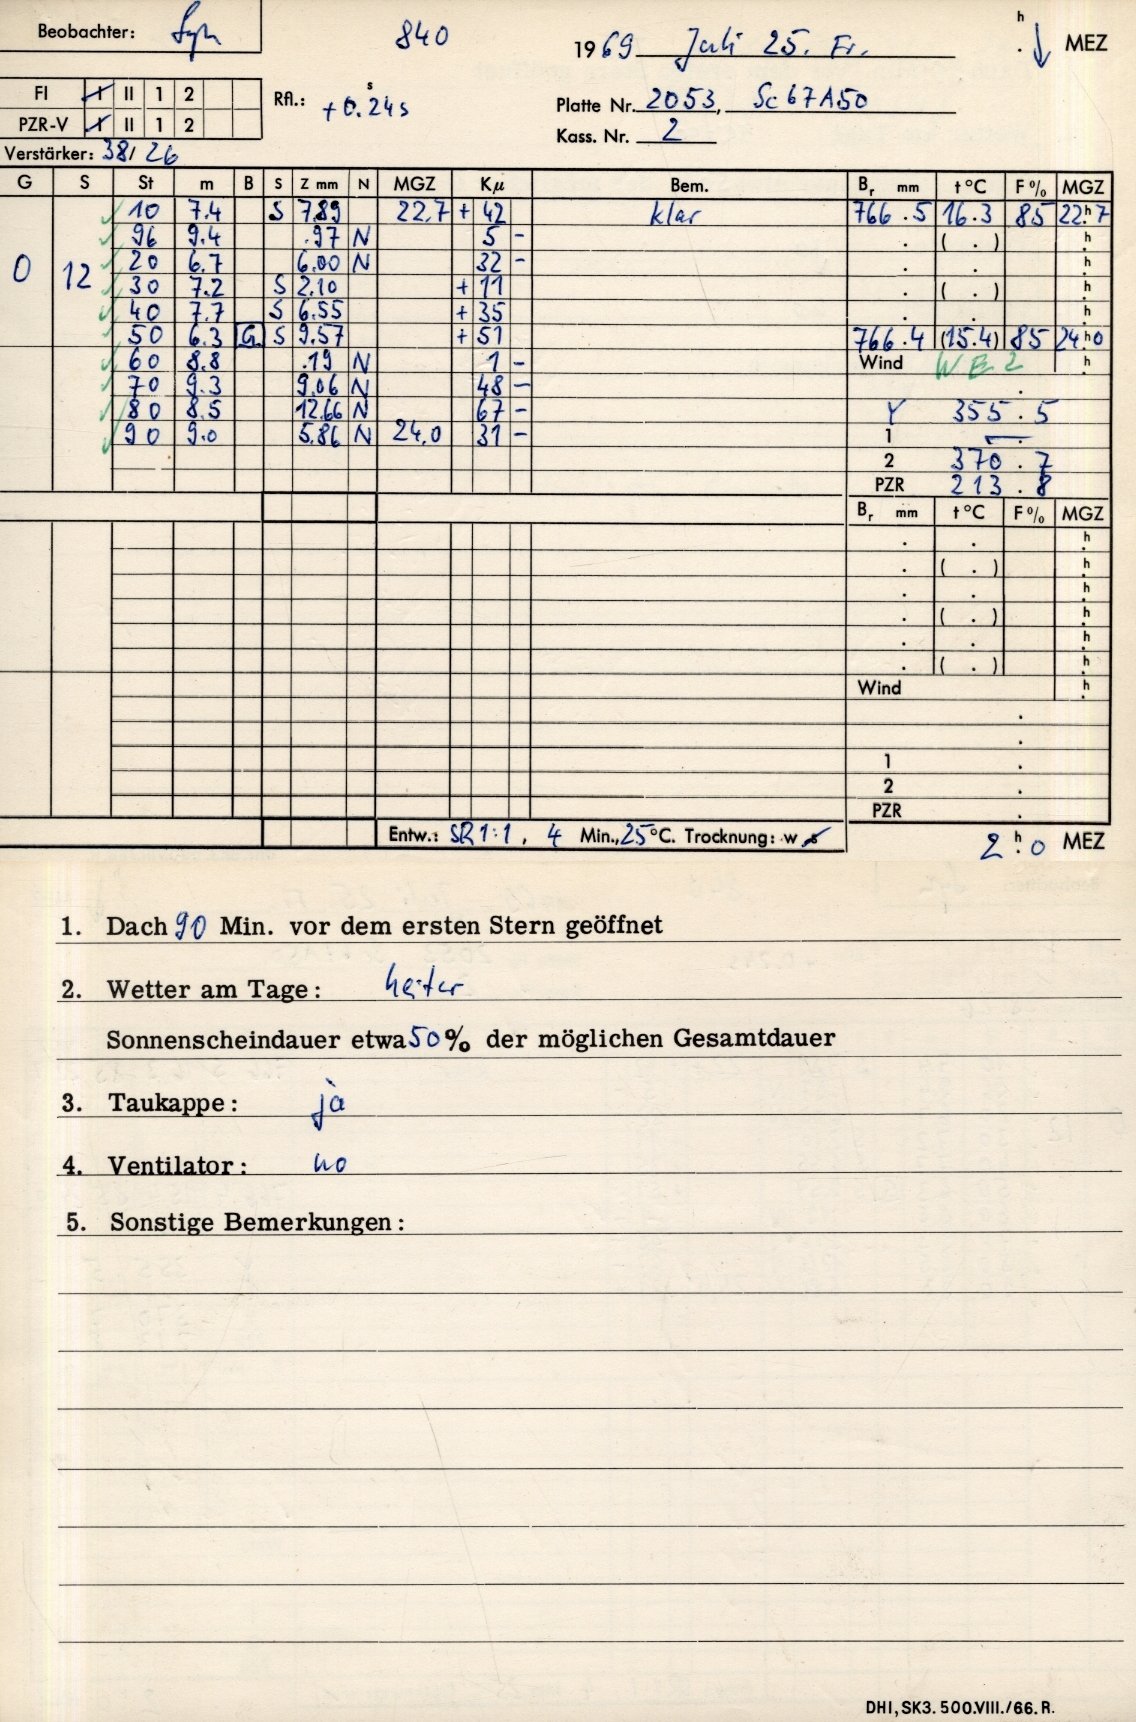 Beobachter: 840 1969 Juli 25. Fr. h . MEZ
FI I II 1 2 Rfl.: +0.24s s Platte Nr. 2053, Sc67A50
PZR-V I II 1 2 Kass. Nr. 2
Verstärker: 38/26
G S St m B S Z mm N MGZ Kµ Bem. Br mm t °C F % MGZ
10 7.4 S 7.89 22,7 + 42 klar 766.5 16.3 85 22h7
96 9.4 .97 N 5 - . ( . ) h
0 12 20 6.7 6.00 N 32 - . . h
30 7.2 S 2.10 + 11 . ( . ) h
40 7.7 S 6.55 + 35 . . h
50 6.3 G S 9.57 + 51 766.4 (15.4) 85 24h0
60 8.8 .19 N 1 - Wind W E 2 h
70 9.3 9.06 N 48 - .
80 8.5 12.66 N 67 - Y 355.5
90 9.0 5.86 N 24,0 31 - 1 — .
2 370.7
PZR 213.8
Br mm t °C F % MGZ
. . h
. ( . ) h
. . h
. ( . ) h
. . h
. ( . ) h
Wind h
.
.
1 .
2 .
PZR .
Entw.: SR 1:1, 4 Min., 25 °C. Trocknung: w s 2h.0 MEZ
1. Dach 90 Min. vor dem ersten Stern geöffnet
2. Wetter am Tage: heiter
Sonnenscheindauer etwa 50 % der möglichen Gesamtdauer
3. Taukappe: ja
4. Ventilator: no
5. Sonstige Bemerkungen:
DHI, SK3. 500.VIII./66. R.